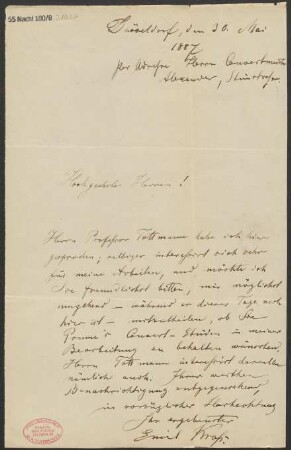 55 Nachl 100/B
Düsseldorf, den 30. Mai
1887
per Adresse Herrn Concertmeister
Alexander,
Hochgeehrte Herren!
Herrn Professor Tottmann habe ich hier
gesprochen; selbiger interessirt sich sehr
für meine Arbeiten, und möchte ich
Sie freundlichst bitten, mir möglichst
umgehend – während er diese Tage noch
hier ist – mitzutheilen, ob Sie
Concert-Etüden in meiner
Bearbeitung zu behalten wünschen,
Herrn Tottmann interessirt dieselben
nämlich auch. Ihrer werthen
Benachrichtigung entgegensehend,
in vorzüglicher Hochachtung
Ihr ergebenster
Emil